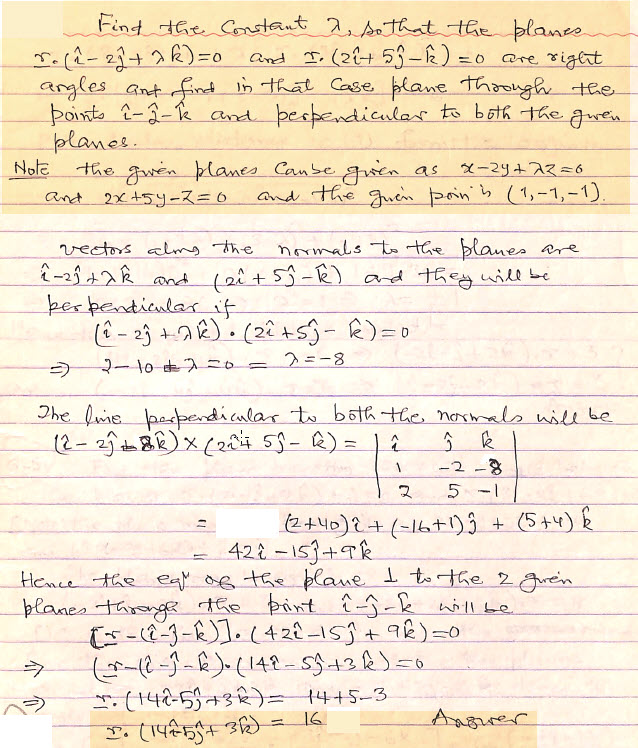 Find the Constant λ, so that the planes
r.(î - 2ĵ + λk̂)=0 and r.(2î + 5ĵ - k̂) = 0 are right
angles and find in that Case plane through the
points î-ĵ-k̂ and perpendicular to both the given
planes.
Note the given planes can be given as x-2y+λz=0
and 2x+5y-z=0 and the given point is (1,-1,-1).
vectors along the normals to the planes are
î-2ĵ+λk̂ and (2î + 5ĵ - k̂) and they will be
perpendicular if
(î - 2ĵ + λk̂) · (2î + 5ĵ - k̂) = 0
⇒ 2 - 10 - λ = 0 = λ = -8
The line perpendicular to both the normals will be
(î - 2ĵ - 8k̂) × (2î + 5ĵ - k̂) = | î ĵ k̂ |
| 1 -2 -8 |
| 2 5 -1 |
= (2+40)î + (-16+1)ĵ + (5+4)k̂
= 42î - 15ĵ + 9k̂
Hence the eqn of the plane ⊥ to the 2 given
planes through the point î-ĵ-k̂ will be
[r-(î-ĵ-k̂)].(42î-15ĵ + 9k̂)=0
⇒ (r-(î-ĵ-k̂).(14î-5ĵ+3k̂)=0
⇒ r.(14î-5ĵ+3k̂) = 14+5-3
r.(14î-5ĵ+3k̂) = 16 Answer